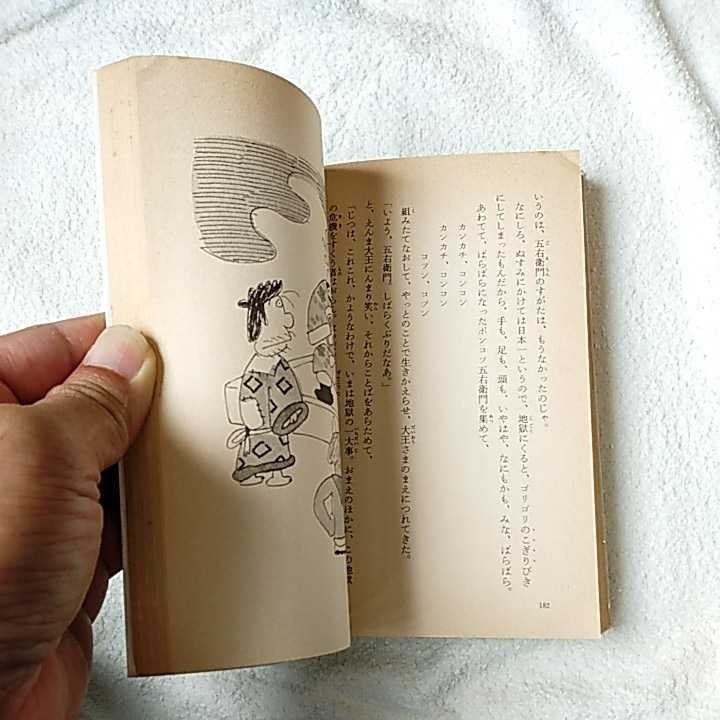 いうのは、五右衛門のすがたは、もうなかったのじゃ。
なにしろ、ぬすみにかけては日本一というので、地獄にくると、ゴリゴリのこぎりびき
にしてしまったもんだから、手も、足も、頭も、いやはや、なにもかも、みな、ばらばら。
あわてて、ばらばらになったポンコツ五右衛門を集めて、
カンカチ、コンコン
カンカチ、コンコン
コブン、コブン
組みたてなおして、やっとのことで生きかえらせ、大王さまのまえにつれてきた。
「いよう、五右衛門、しばらくぶりだなあ。」
と、えんま大王にんまり笑い、それからことばをあらためて、
「じつは、これこれ、かようなわけで、いまは地獄の一大事。おまえのほかに、この地獄
の危機をすくう者は
182